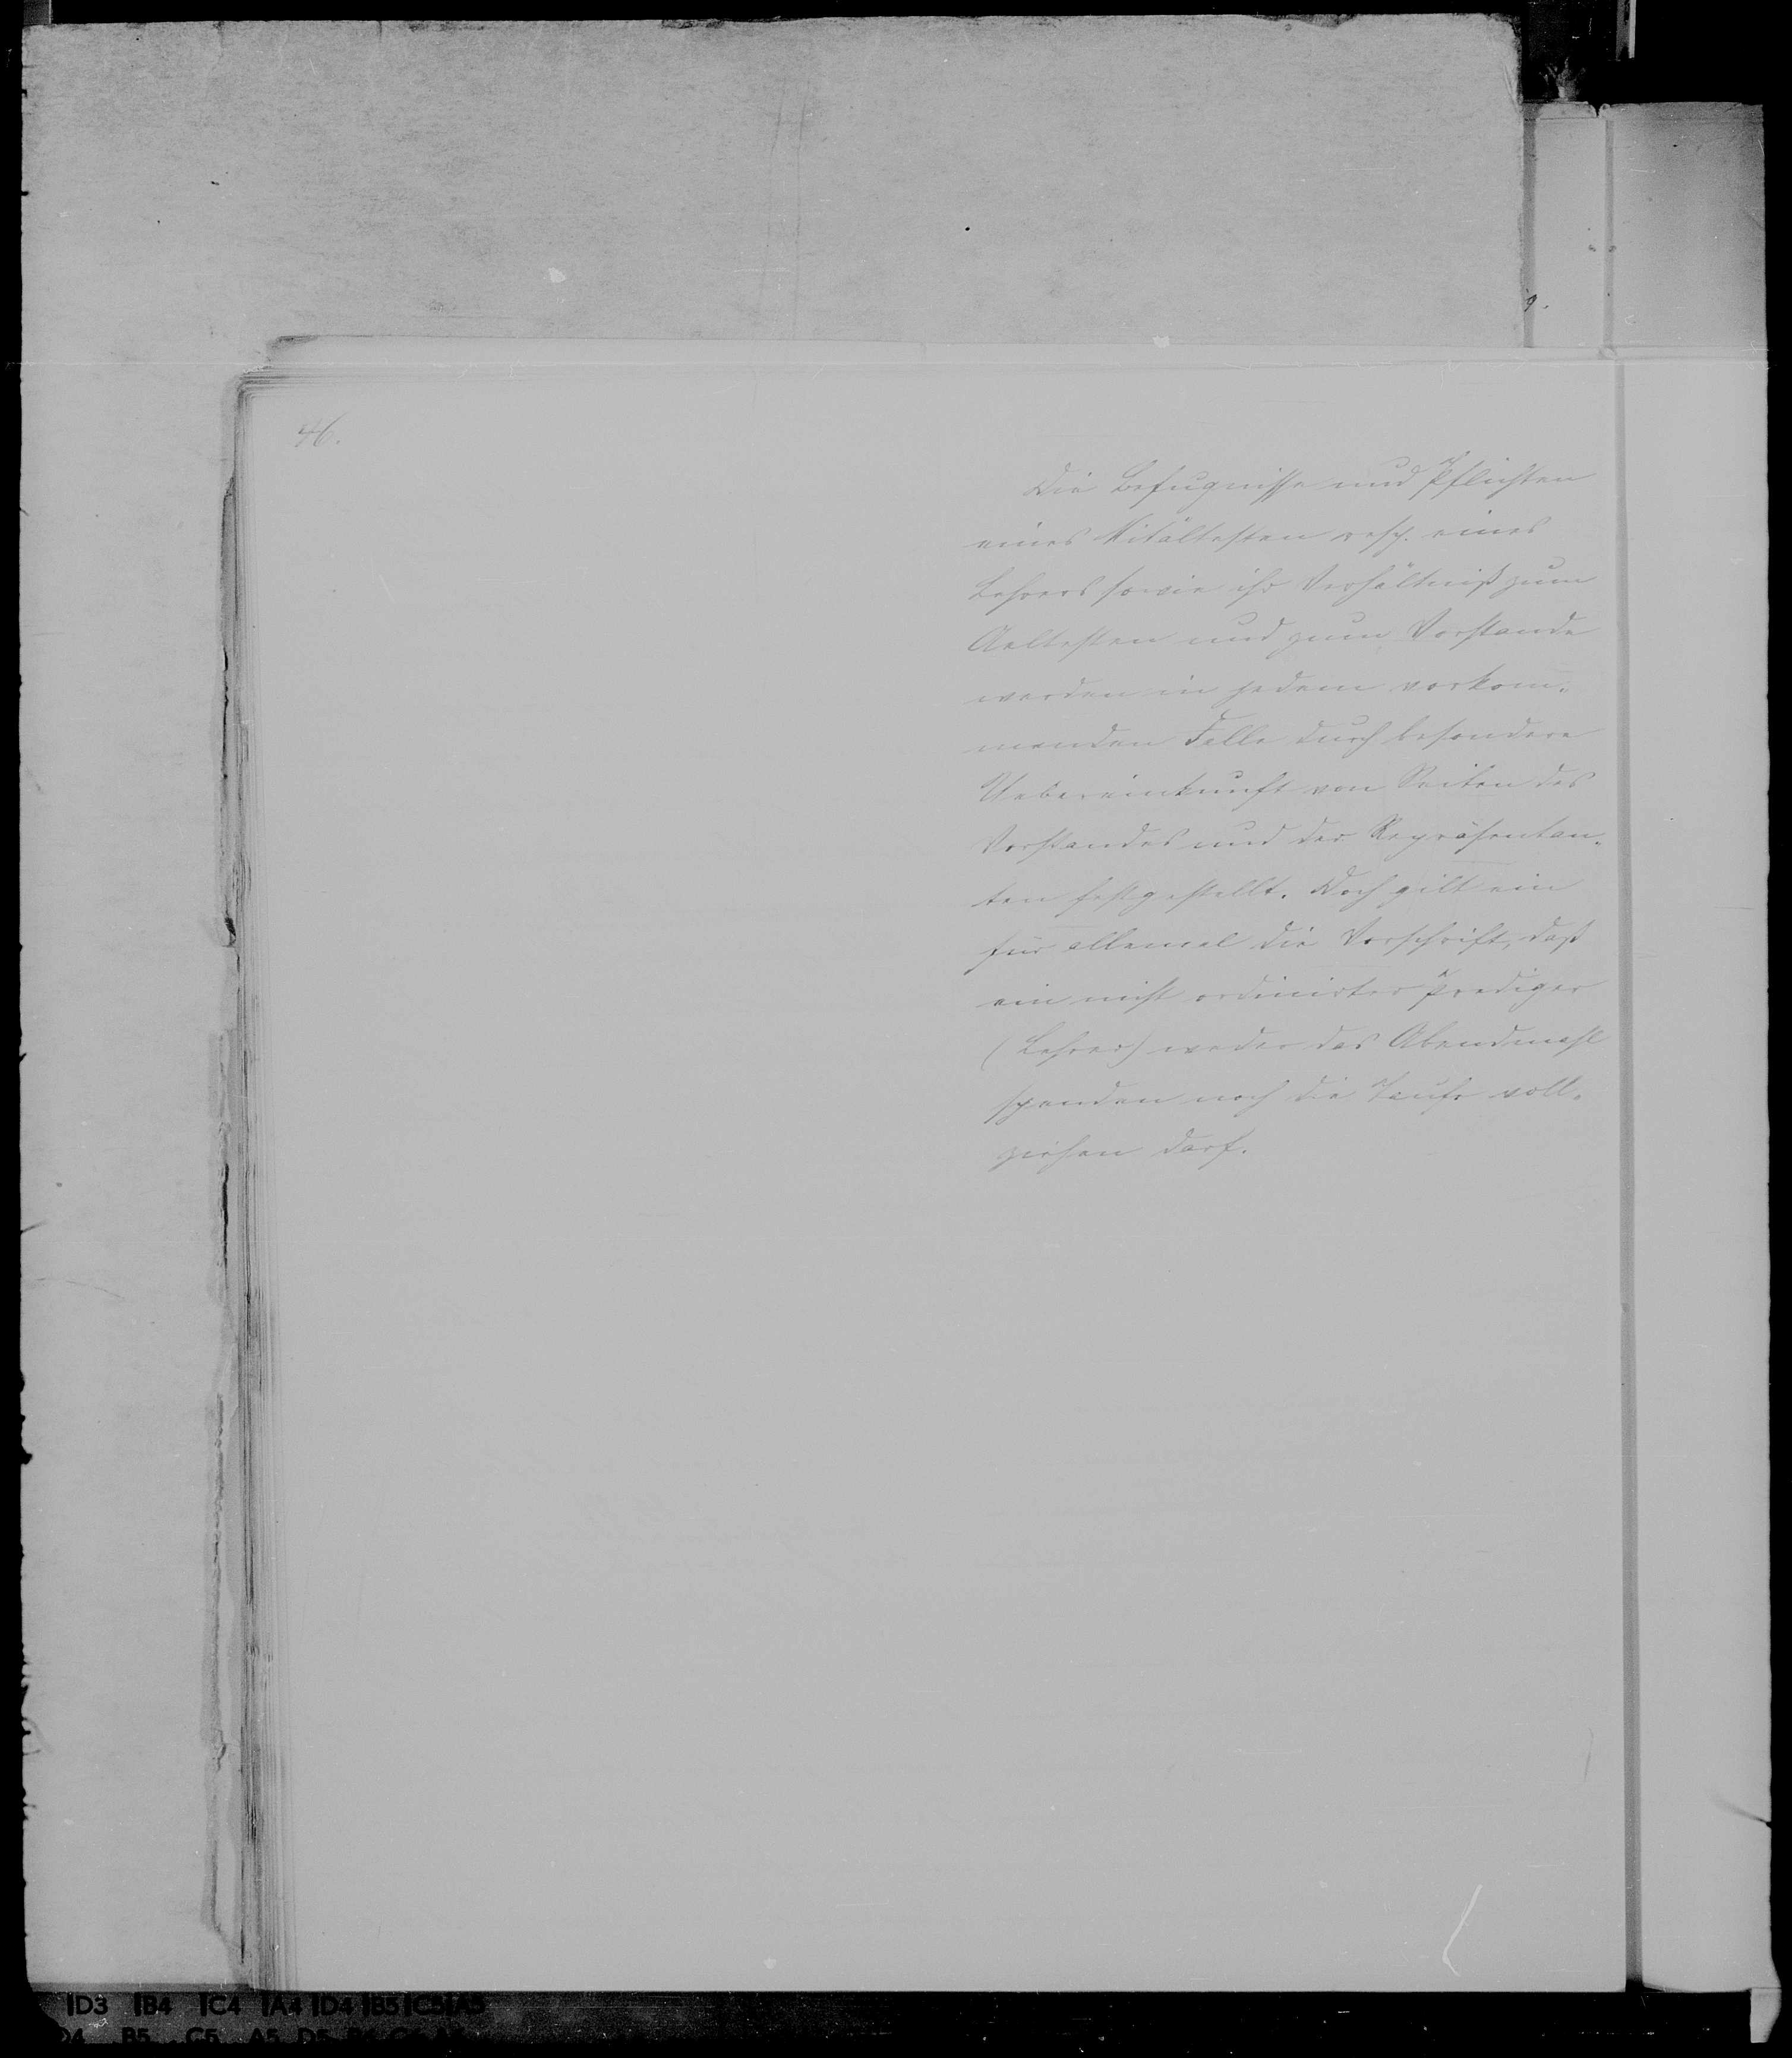 46.
Die Befugnisse und Pflichten
eines Mitältesten resp. eines
Lehrers sowie ihr Verhältniß zum
Aeltesten und zum Vorstande
werden in jedem vorkom-
menden Falle durch besondere
Uebereinkunft von Seiten des
Vorstandes und der Repräsentan-
ten festgestellt. Doch gilt ein
für allemal die Vorschrift, daß
ein nicht ordinirter Prediger
(Lehrer) weder das Abendmahl
spenden noch die Taufe voll-
ziehen darf.
D3 B4 C4 A4 D4 B5 C5 A5
D4 B5 C5 A5 D5